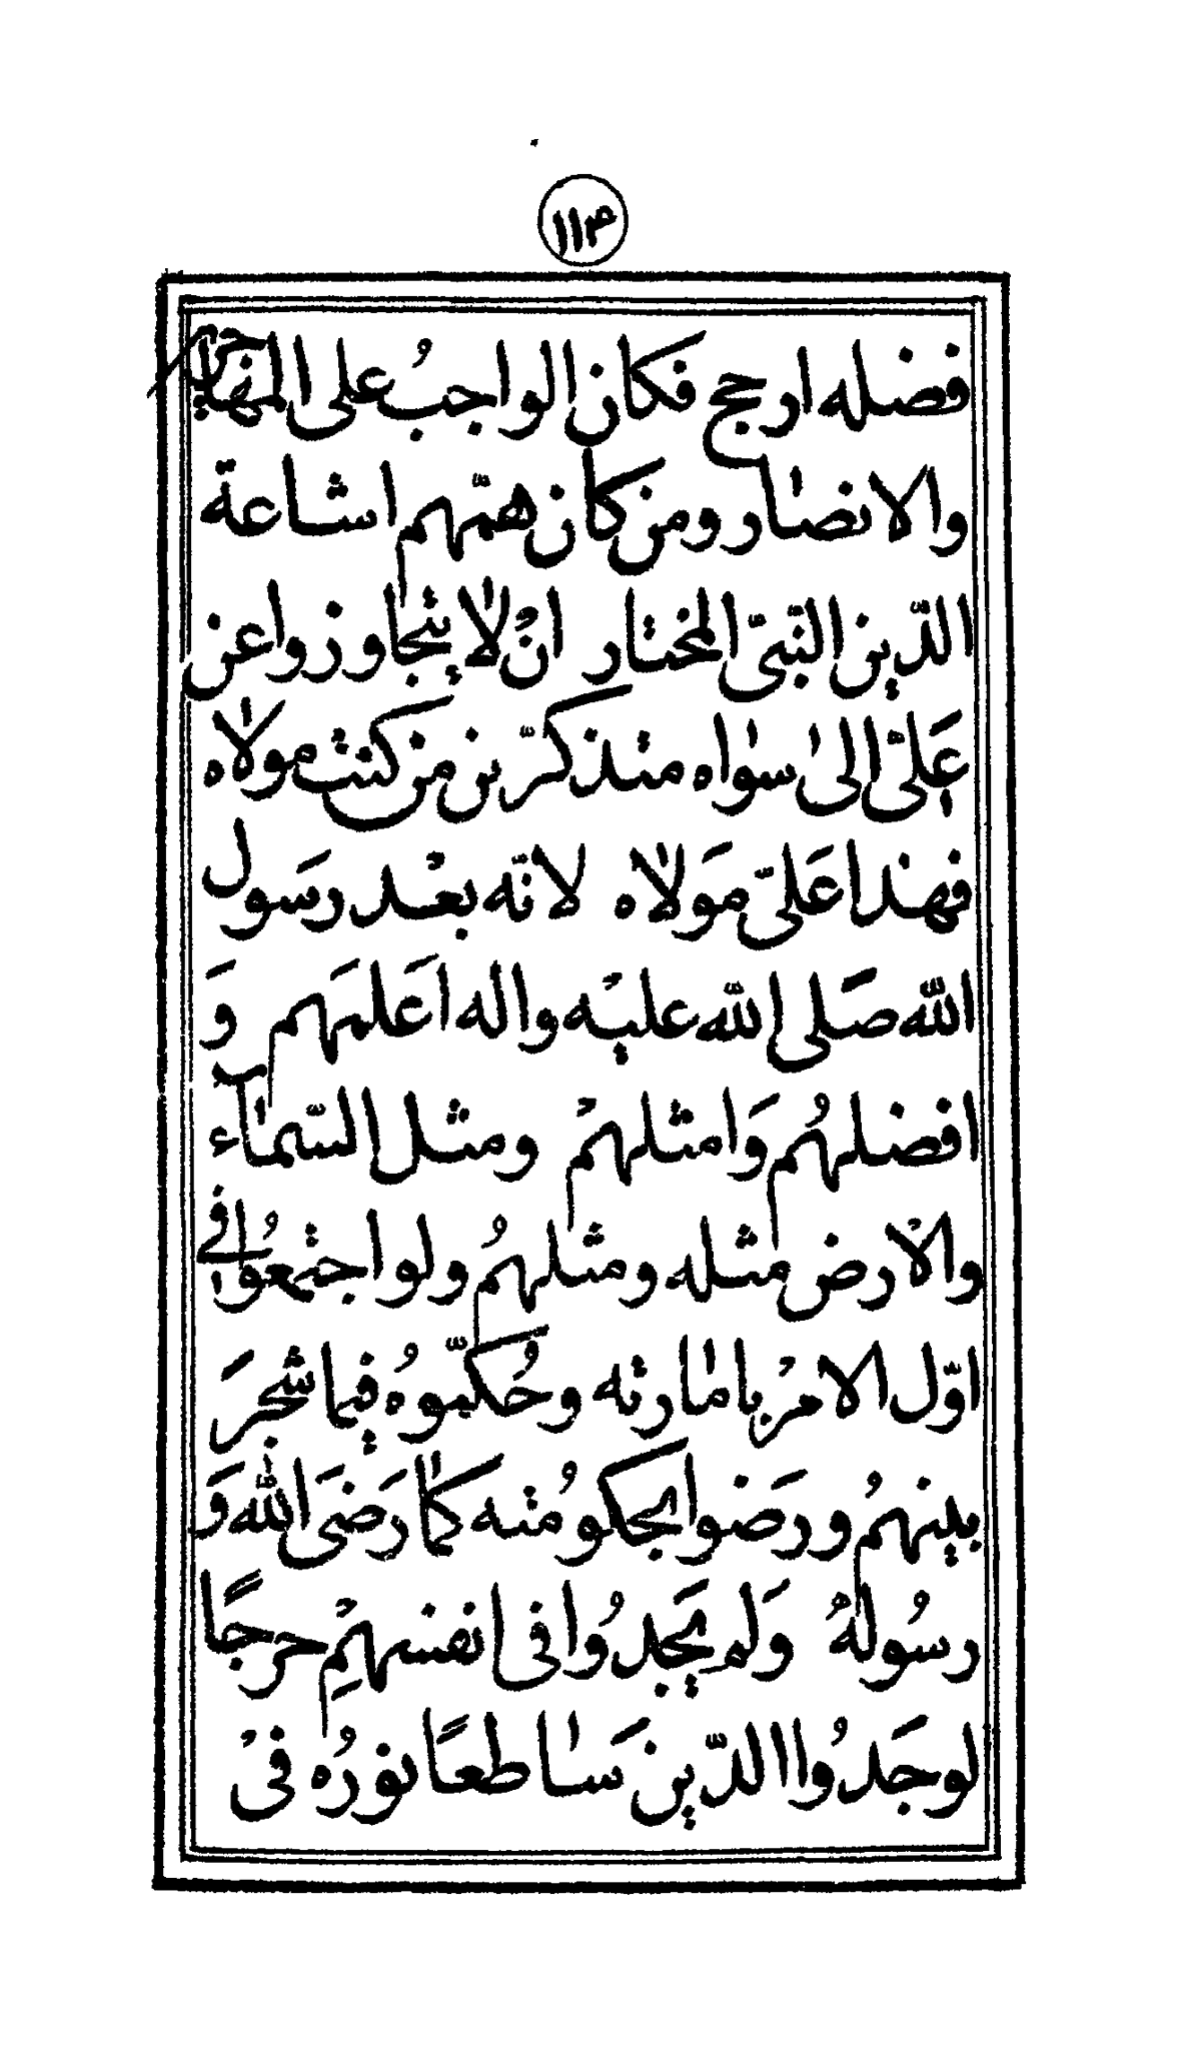 ١١٤
فضله ارجح فكان الواجبُ على المهاجرين
والانصٰار ومن كان همّهم اشاعة
الدّين النّبىّ المختار انْ لاٰ يتجاوزوا عن
عَلِىّ الىٰ سوٰاه متذكرّين من كنت مولاٰه
فهٰذا عَلىّ مَولاٰه لانّه بعْد رسَول
اللّٰه صَلى اللّٰه عليْه واله اعَلمَهم وَ
افضلهُم وَامثلهمْ ومثل السّمٰآء
والارض مثله ومثلهُم ولواجتمعُوا فى
اوّل الامْر بامٰارته وحُكّموُه فِيما شجرَ
بينهمُ ورَضوا بحكومُته كمٰا رَضىَ اللّٰه وَ
رسُولهُ وَلم يَجدُوا فى انفسهمِْ حرجًا
لوجَدوُا الدّينَ سَٰاطعًا نورُه فىْ